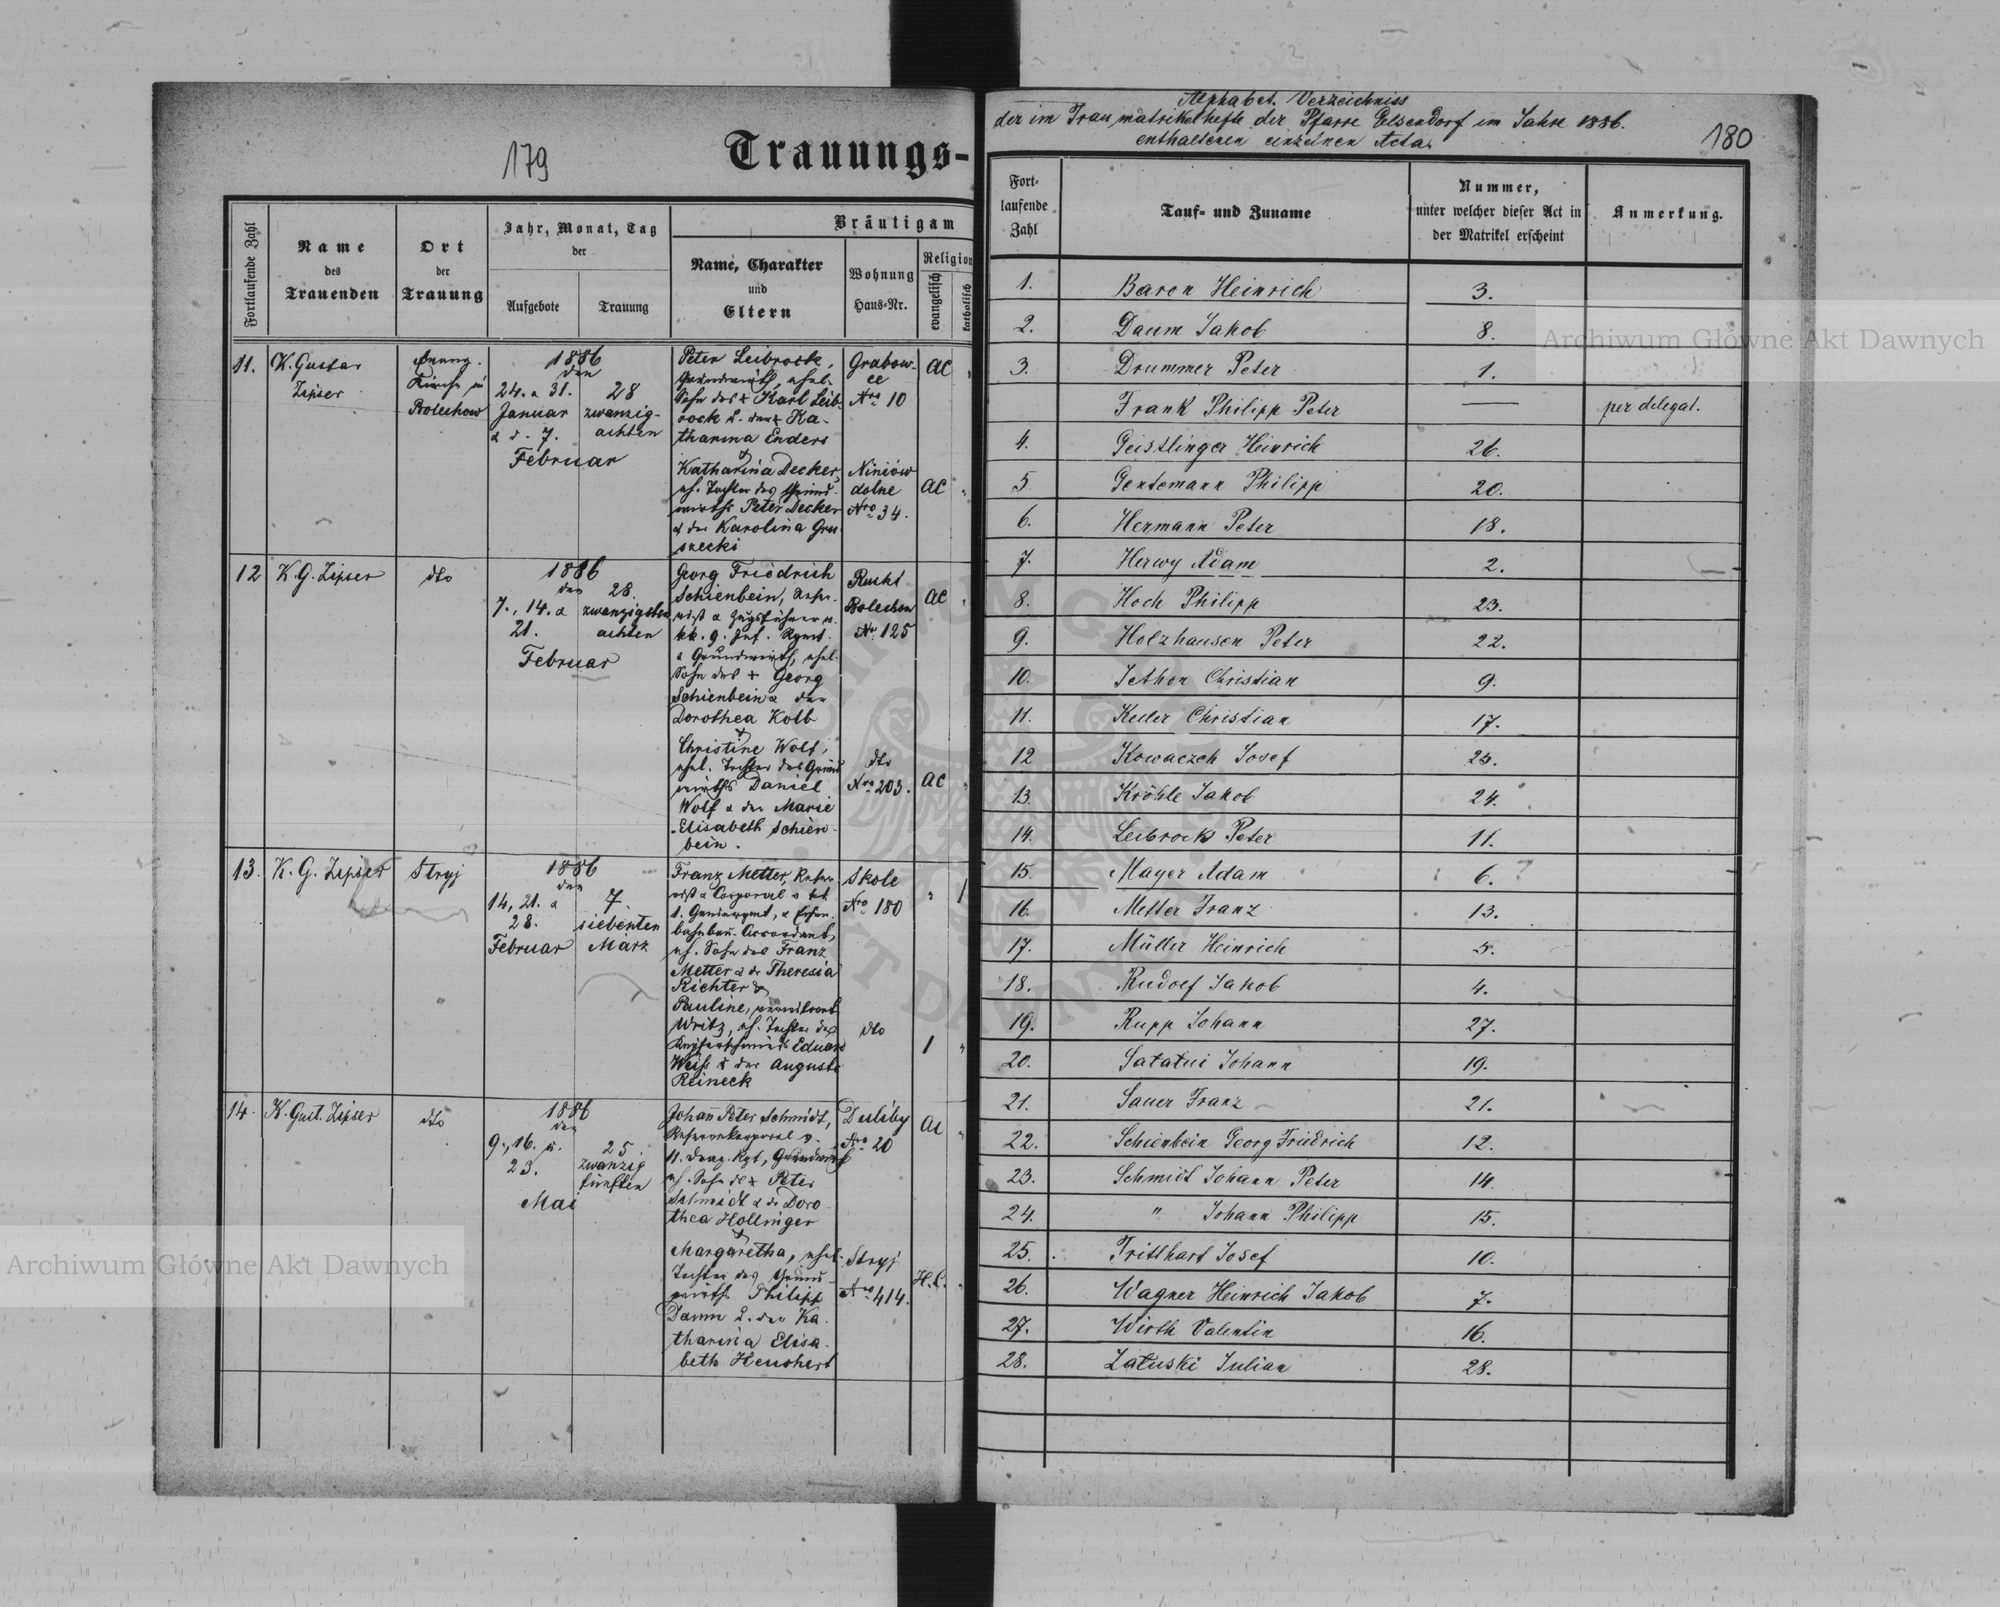 179
Trauungs-
Fortlaufende Zahl
Name
des
Trauenden
Ort
der
Trauung
Jahr, Monat, Tag
der
Aufgebote
Trauung
Bräutigam
Name, Charakter
und
Eltern
Wohnung
Haus-Nr.
Religion
evangelisch
katholisch
11.
K. Gustav
Zipser
evang.
Kirche in
Bolechow
1886
den
24. u 31.
Januar
u d. 7.
Februar
28
zwanzig-
achten
Peter Leibrock,
Grundwirth, ehel.
Sohn des + Karl Leib-
rock u. der + Ka-
tharina Enders
&
Katharina Decker,
eh. Tochter des Grund-
wirths Peter Decker
u der Karolina Gru
szecki
Grabow-
ce
Nro 10
Niniów
dolne
Nro 34.
AC
AC
12
K. G. Zipser
dto
1886
den
7., 14. u
21.
Februar
28.
zwanzigsten
achten
Georg Friedrich
Schienbein, Reser-
vist u Zugsführer
kk. 9. Inf. Rgmt.
u Grundwirth, ehel.
Sohn des + Georg
Schienbein u der
Dorothea Kolb
&
Christine Wolf,
ehel. Tochter des Grund
wirths Daniel
Wolf u der Marie
Elisabeth Schien-
bein.
Ruski
Bolechow
No. 125
dto
Nro 203.
AC
AC
13.
K. G. Zipser
Stryj
1886
den
14, 21. u
28.
Februar
7.
siebenten
März
Franz Metter, Reser-
vist u Corporal
bahnbau-Accordant,
eh. Sohn des Franz
Metter u der Theresia
Richter &
Pauline,
Writz, eh. Tochter des
Kupferschmieds Eduard
Weiß u der Auguste
Reineck
Skole
Nro 180
dto
1
14.
K. Gust. Zipser
dto
1886
den
9., 16. u.
23.
Mai
25.
zwanzig
fünften
Johann Peter Schmidt,
Reservekorporal v.
11. Drag. Rgt, Grundwirth
eh. Sohn d + Peter
Schmidt u d. Doro-
thea Hollinger
&
Margaretha, ehel.
Tochter des Grund-
wirths Philipp
Daum u. der Ka-
tharina Elisa-
beth Heuchert
Duliby
Nro 20
Stryj
Nro 414.
AC
H.C.
Alphabet. Verzeichniss
der im Traumatrikelhefte der Pfarre Gelsendorf im Jahre 1886.
enthaltenen einzelnen Acta.
180
Fort-
laufende
Zahl
Tauf- und Zuname
Nummer,
unter welcher dieser Act in
der Matrikel erscheint
Anmerkung.
1. Baron Heinrich 3.
2. Daum Jakob 8.
3. Drummer Peter 1.
Frank Philipp Peter — per delegat.
4. Geistlinger Heinrich 26.
5. Gentemann Philipp 20.
6. Hermann Peter 18.
7. Herwy Adam 2.
8. Hoch Philipp 23.
9. Holzhausen Peter 22.
10. Jethon Christian 9.
11. Keeler Christian 17.
12 Kowaczek Josef 25.
13. Kröhle Jakob 24.
14. Leibrock Peter 11.
15. Mayer Adam 6.
16. Metter Franz 13.
17. Müller Heinrich 5.
18. Rudolf Jakob 4.
19. Rupp Johann 27.
20. Satatui Johann 19.
21. Sauer Franz 21.
22. Schienbein Georg Friedrich 12.
23. Schmidt Johann Peter 14.
24. " Johann Philipp 15.
25. Tritthart Josef 10.
26. Wagner Heinrich Jakob 7.
27. Wirth Valentin 16.
28. Załuski Julian 28.
Archiwum Główne Akt Dawnych
Archiwum Główne Akt Dawnych